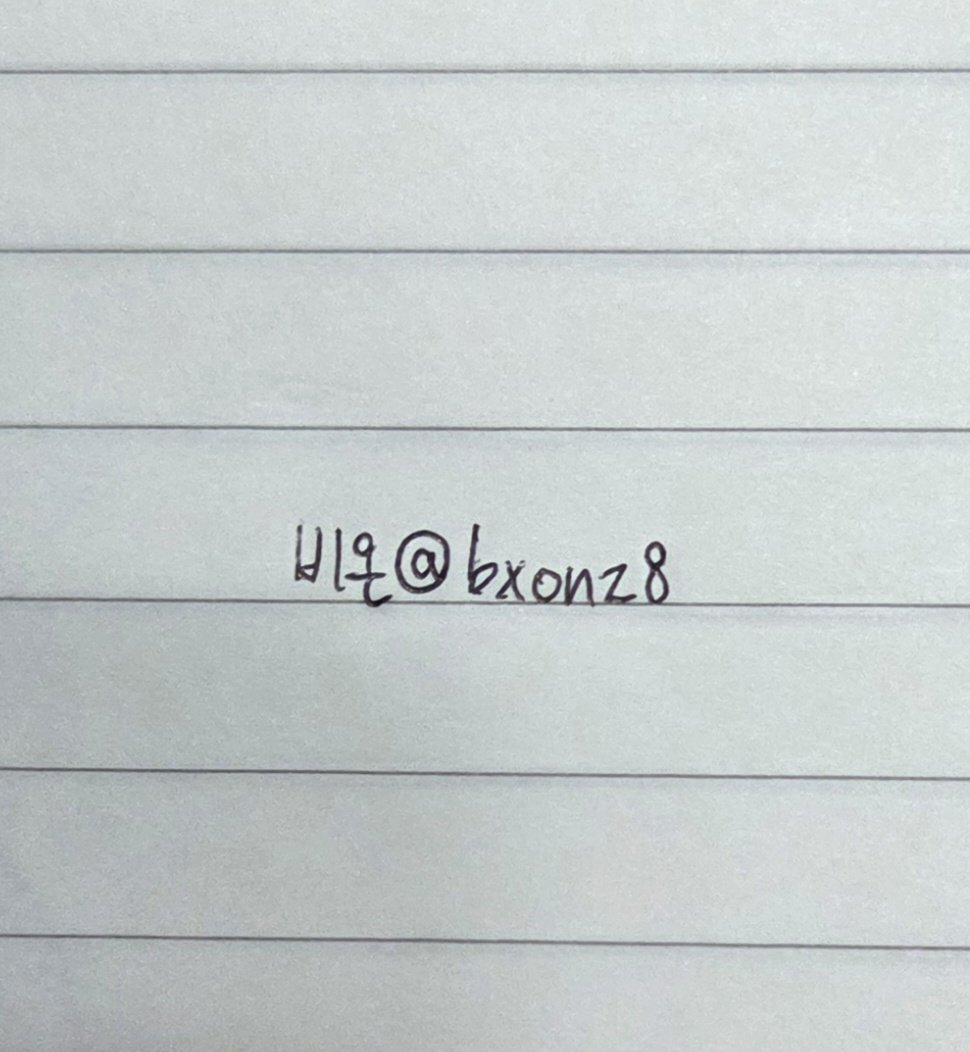 비온@bxonz8